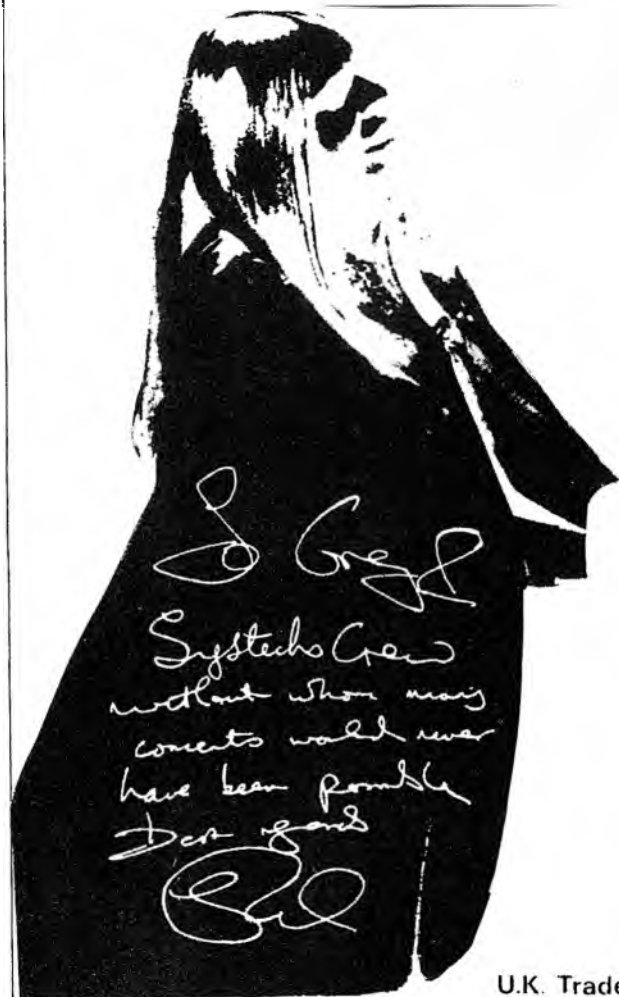 To Greg &
Systechs Crew
without whom many
concerts would never
have been possible
Best regards
U.K. Trade